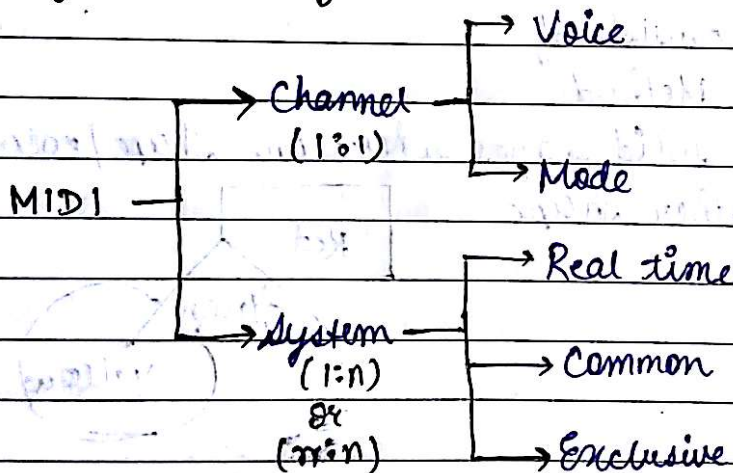 MIDI
Channel
(1:1)
Voice
Mode
System
(1:n)
or
(m:n)
Real time
Common
Exclusive